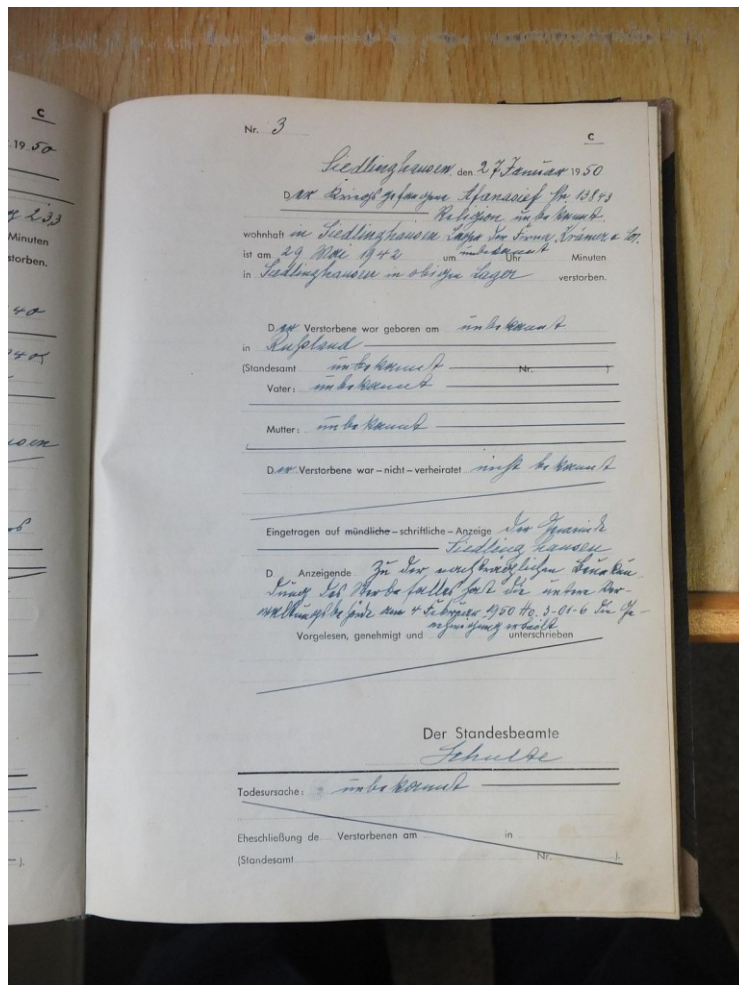 C
19 50
233
Minuten
storben.
40
Nr. 3
C
Siedlinghausen, den 27 Januar 19 50
Der Kriegsgefangene Afanasief Nr 13843
Religion unbekannt
wohnhaft in Siedlinghausen Lager der Firma Krämer & Co.
ist am 29 Mai 1942 um unbekannt Uhr Minuten
in Siedlinghausen in obigen Lager verstorben.
Der Verstorbene war geboren am unbekannt
in Rußland
(Standesamt unbekannt Nr. )
Vater: unbekannt
Mutter: unbekannt
Der Verstorbene war – nicht – verheiratet nicht bekannt
Eingetragen auf mündliche – schriftliche – Anzeige der Gemeinde
Siedlinghausen
D Anzeigende Zu der nachträglichen Beurkun
dung des Sterbefalles hat die untere Ver-
waltungsbehörde am 4 Februar 1950 3-01-6 die Ge-
nehmigung erteilt
Vorgelesen, genehmigt und unterschrieben
Der Standesbeamte
Schulte
Todesursache: unbekannt
Eheschließung de Verstorbenen am in
(Standesamt Nr. ).